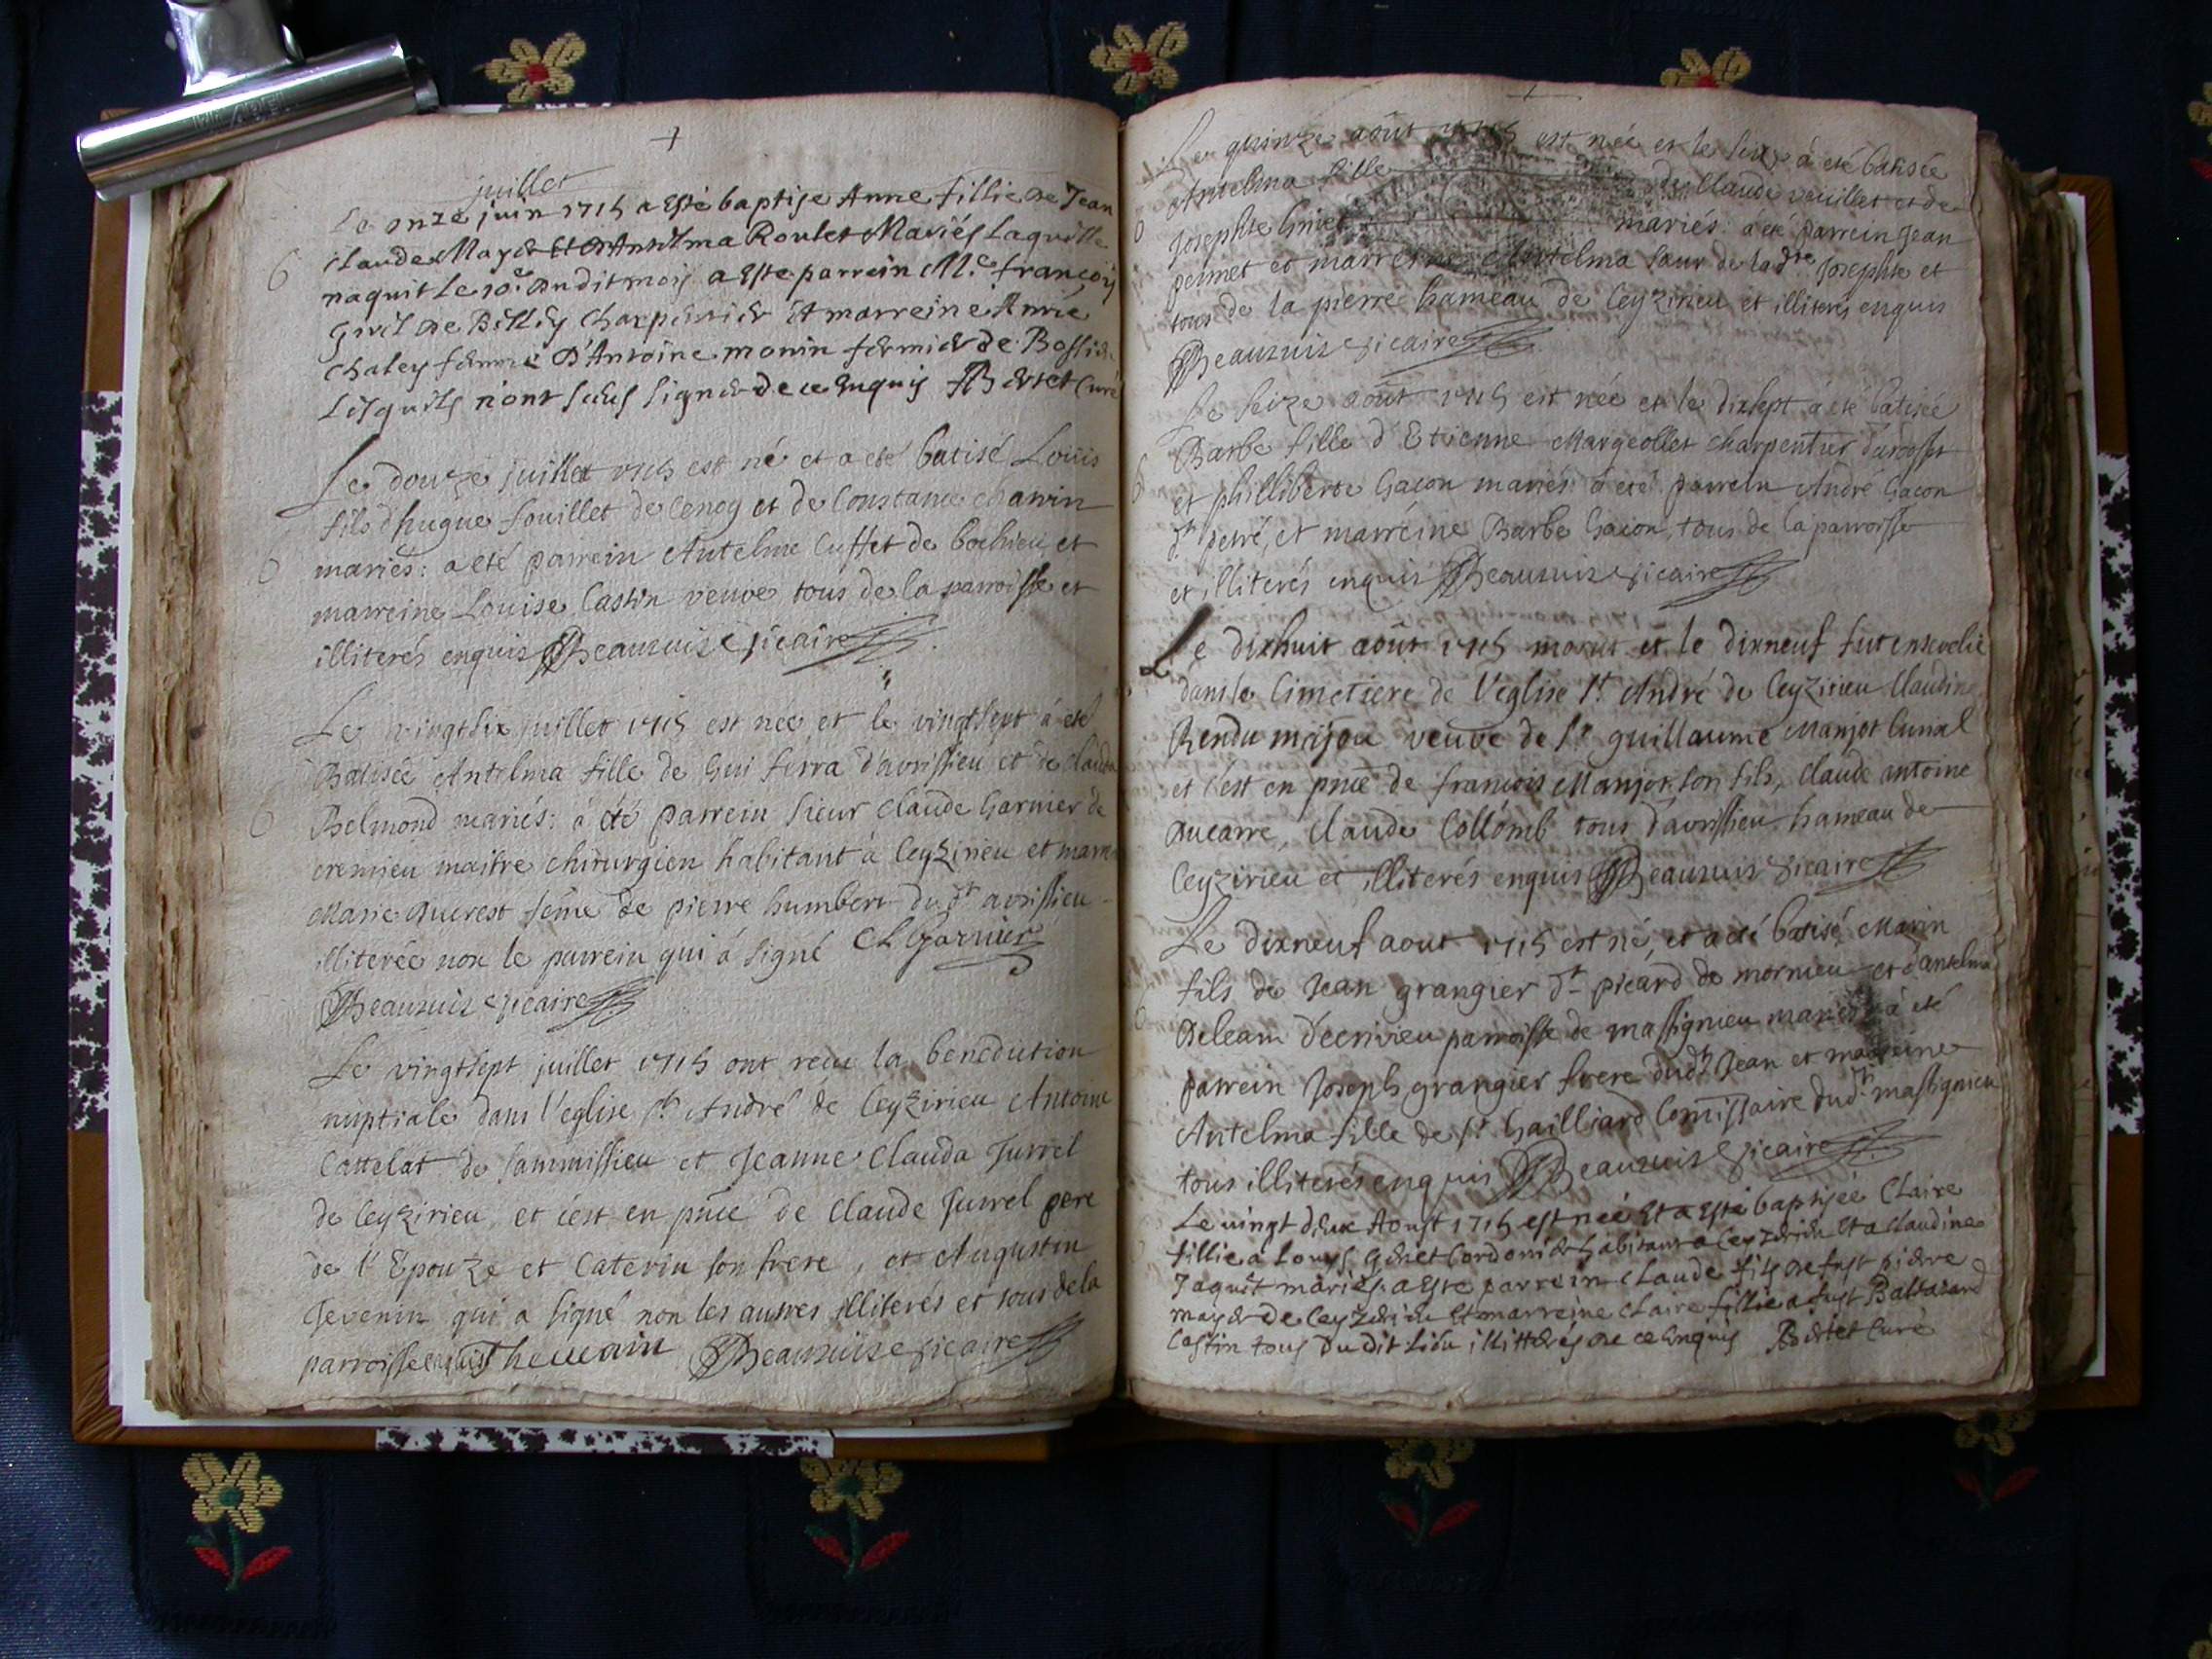 +
juillet
Le onze juin 1715 a Esté baptise Anne fillie de Jean
Claude Mayer Et D'Antelma Roulet Mariés Laquelle
6
naquit Le 10e dudit mois a Este parrein Me françois
de Billieu Charpentier Et marreine Anne
Chaley femme D'Antoine monin fermier de
Lesquels n'ont sceus signer de ce Enquis Bertet Curé
Le douze juillet 1715 est né et a eté batisé Loüis
fils d'hugue fouillet de Cenoy et de Constance chanin
mariés: a eté parrein Antelme Cuffet de bochieu et
marreine Louise Castin veuve tous de la parroisse et
illiterés enquis Beaupuis vicaire
Le vingtsix juillet 1715 est née et le vingtsept à eté
Batisée Antelma fille de Gui ferra d'avrissieu et de clauda
Belmond mariés: à été parrein sieur Claude Garnier de
cremieu maitre chirurgien habitant à Ceyzirieu et marr
Marie feme de pierre humbert du dt avrissieu
illiterée non le parrein qui à signé Cl Garnier
Beaupuis vicaire
Le vingtsept juillet 1715 ont recu la benediction
nuptiale dans l'eglise st André de Ceyzirieu Antoine
Cattelat de sammissieu et Jeanne Clauda Jurrel
de Ceyzirieu, et c'est en pnce de Claude Jurrel pere
de l'Epouze et Caterin son frere, et Augustin
Tevenin qui a signé non les autres illiterés et tous de la
parroisse enquis Thevenin Beaupuis vicaire
+
Le quinze août 1715 est née et le seize à eté batisée
Antelma fille de Claude veuillet et de
Josephte mariés: à été parrein Jean
pernet et marreine Antelma saur de ladte Josephte et
tous de la pierre hameau de Ceyzirieu et illiterés enquis
Beaupuis vicaire
Le seize août 1715 est née et le dixsept à eté batisée
Barbe fille d'Etienne Margeollet charpentier
6
et philliberte Gacon mariés à eté parrein André Gacon
dt petré, et marreine Barbe Gacon, tous de la parroisse
et illiterés enquis Beaupuis vicaire
Le dixhuit août 1715 morut et le dixneuf fut enseveli
dans le Cimetiere de l'eglise st André de Ceyzirieu Claudine
Rendu veuve de sr guillaume Manjot
et c'est en pnce de francois Manjot son fils, Claude antoine
Claude Collomb tous d'avrissieu hameau de
Ceyzirieu et illiterés enquis Beaupuis vicaire
Le dixneuf aout 1715 est né, et a eté batisé Marin
fils de Jean grangier dt picard de mornieu et d'antelma
Deleam d'ecrivieu parroisse de massignieu mariés à été
parrein Joseph grangier frere dudt Jean et marreine
Antelma fille de sr Gailliard Comissaire dudt massignieu
tous illiterés enquis Beaupuis vicaire
Le vingt deux Aoust 1715 est née Et a Esté baptisée Claire
fillie a Louys Genet Cordonnier habitant a Ceyzerieu Et a claudine
Jaquet mariés. a Este parrein Claude fils de fust pierre
mayer de Ceyzerieu Et marreine Claire fillie a fust Baltazard
Castin tous Du dit Lieu illitterés de ce Enquis Bertet Curé